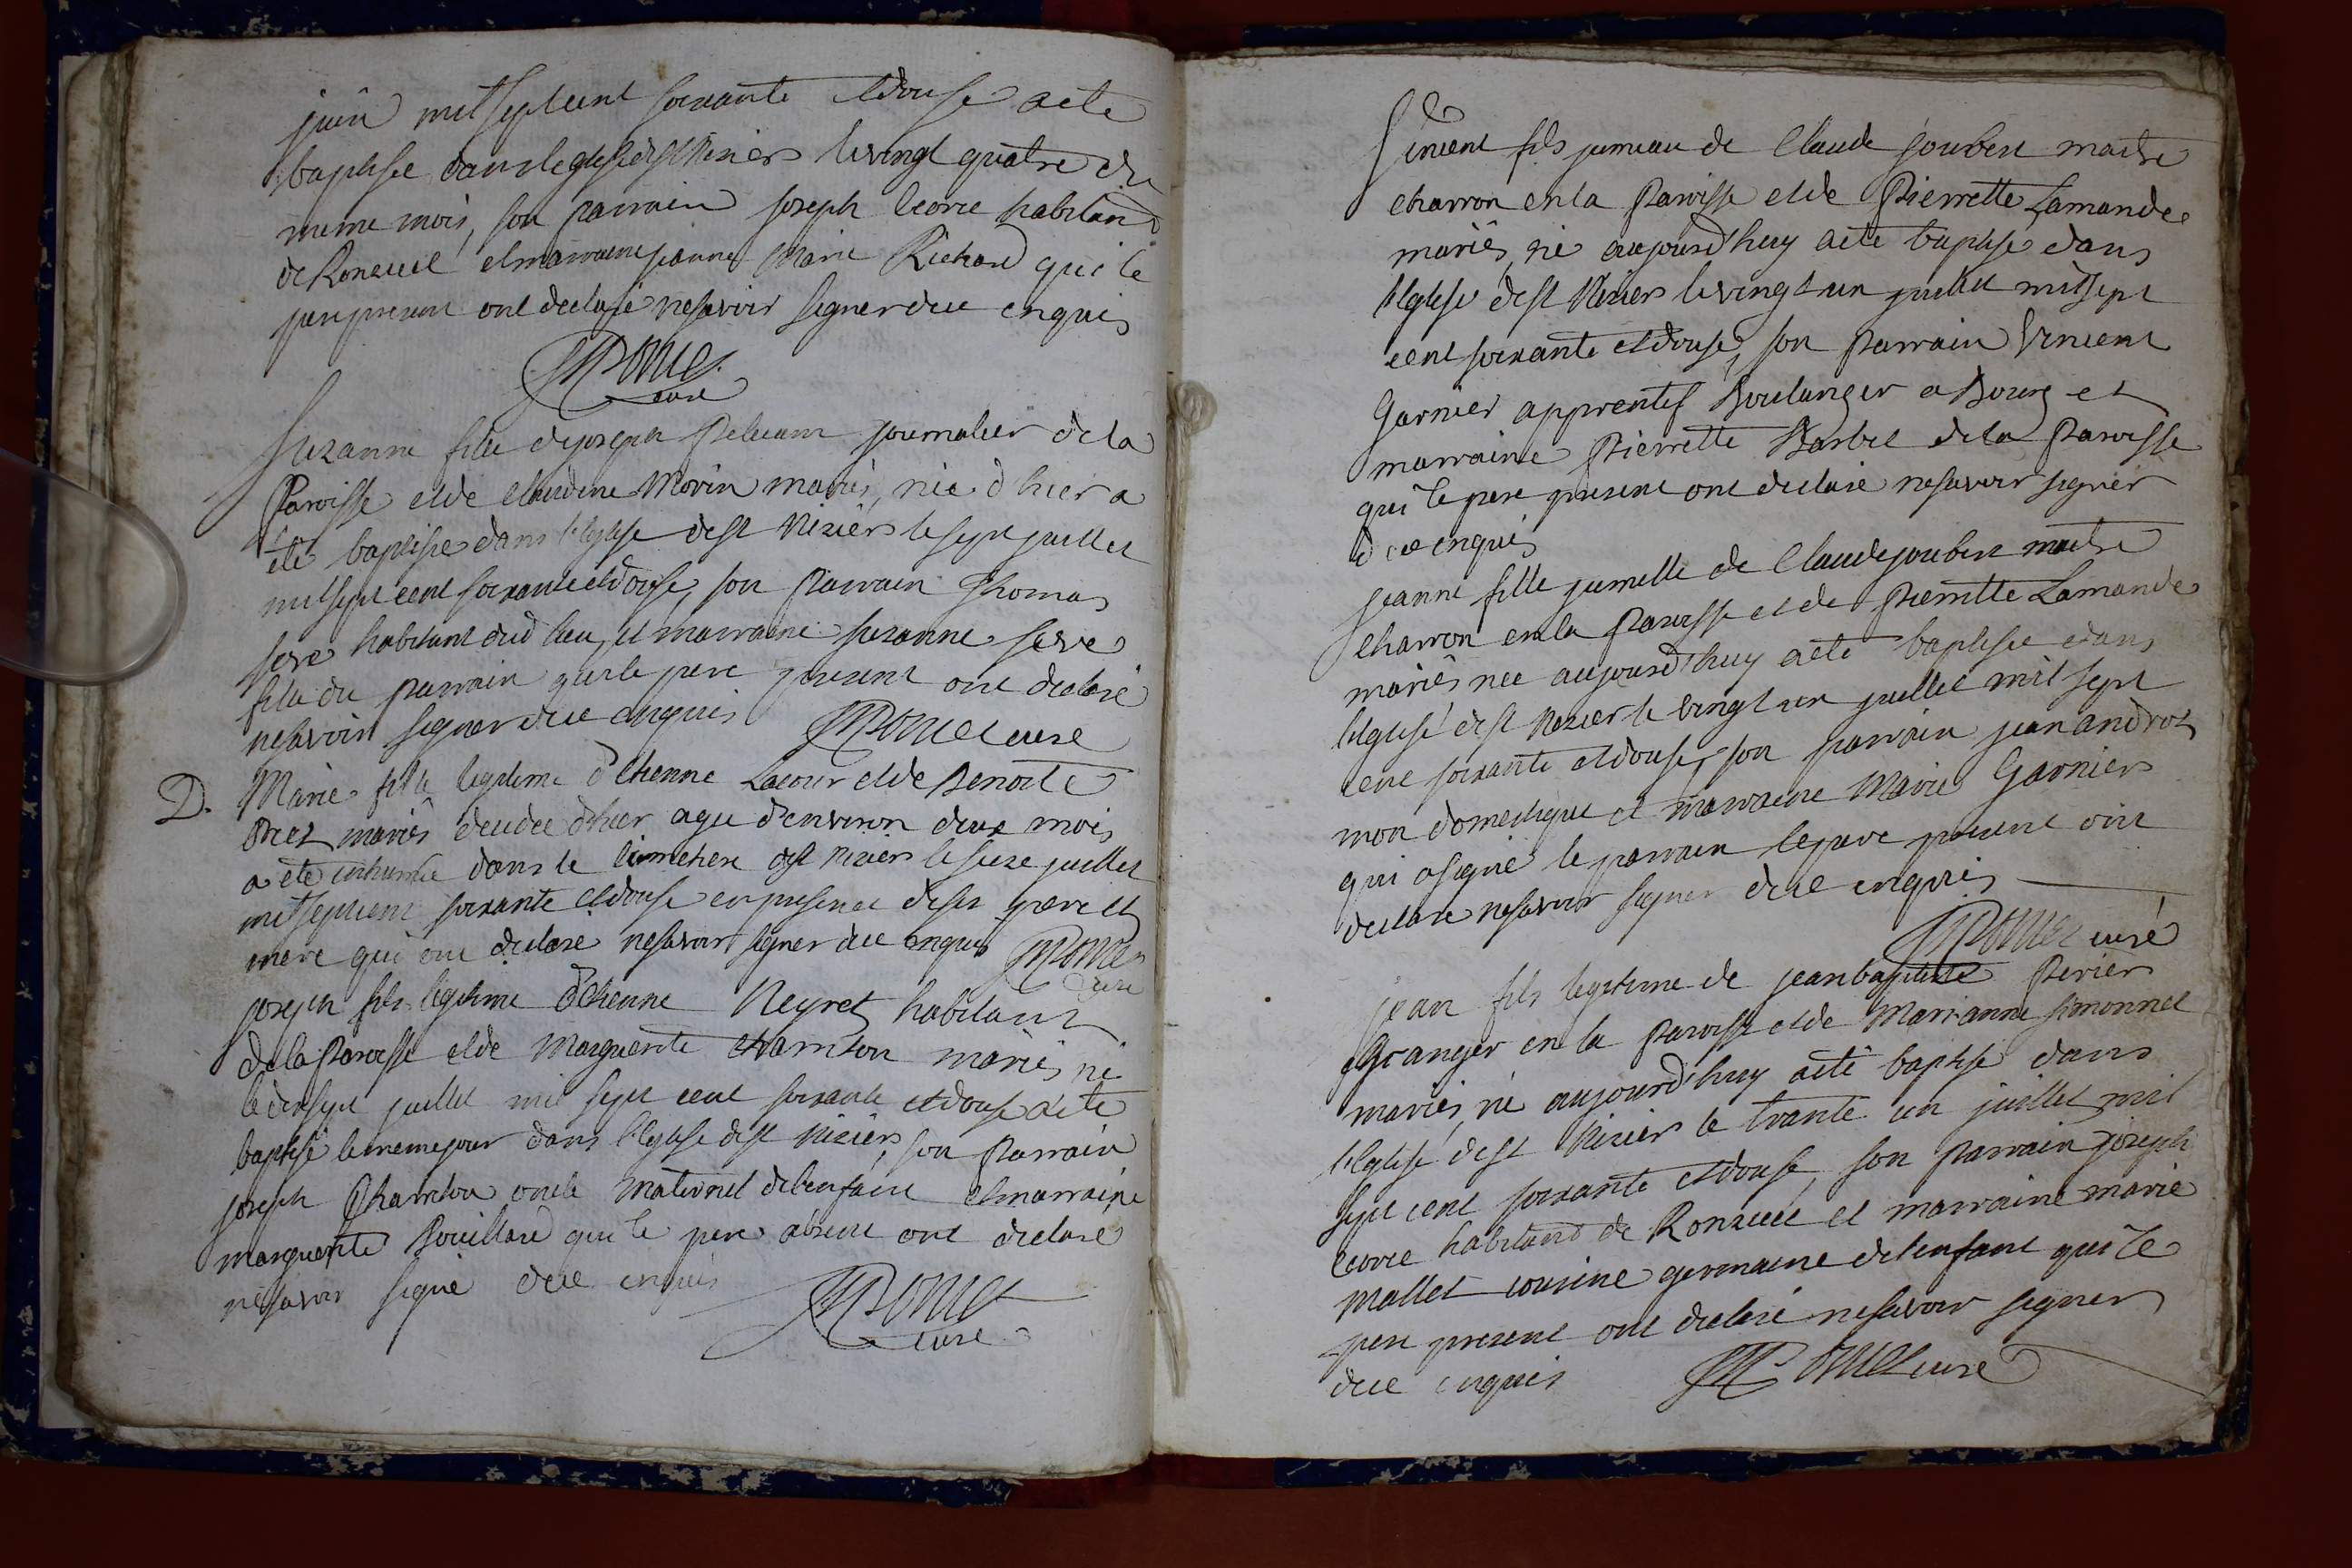 juin mil sept cent soixante et douse a ete
baptisée dans leglise de st Nizier le vingt quatre du
meme mois, son parrain joseph Ecorce habitand
de Ronzuel et marraine jeanne Marie Richard qui le
pere present ont declaré ne savoir signer de ce enquis
Curé
Suzanne fille de joseph journalier de la
Paroisse et de Claudine Morin mariés, née d'hier a
été baptisée dans l'Eglise de st Nizier le sept juillet
mil sept cent soixante et douse, son Parrain Thomas
Serve habitant dud lieu, et marraine Suzanne Serve
fille du parrain qui le pere present ont declaré
ne savoir signer de ce enquis curé
D. Marie fille legitime d'Etienne Lacour et de Benoite
mariés decedée d'hier agée d'environ deux mois
a ete inhumée dans le cimetiere de st Nizier le seize juillet
mil sept cent soixante et douse en presence de ses pere et
mere qui ont declaré ne savoir signer de ce enquis
curé
joseph fils legitime d'Etienne Neyret habitant
de la Paroisse et de Marguerite Chambon mariés né
le dix sept juillet mil sept cent soixante et douse a ete
baptisé le meme jour dans l'Eglise de st Nizier, son Parrain
joseph Chambon oncle maternel de lenfant et marraine
marguerite Bouillard qui le pere absent ont declaré
ne savoir signé de ce enquis
curé
Vincent fils jumeau de Claude joubert maitre
charron en la Paroisse et de Pierrette Lamande
mariés, né aujourd'huy a ete baptisé dans
l'Eglise de st Nizier le vingt un juillet mil sept
cent soixante et douse, son Parrain Vincent
Garnier apprentif Boulanger a Bourg et
marraine Pierrette Barbet de la Paroisse
qui le pere present ont declaré ne savoir signer
de ce enquis
jeanne fille jumelle de Claude joubert maitre
charron en la Paroisse et de Pierrette Lamande
mariés née aujourd'huy a ete baptisée dans
l'Eglise de st Nizier le vingt un juillet mil sept
cent soixante et douse, son parrain jean androt
mon domestique et marraine Marie Garnier
qui a signé le parrain le pere present ont
declaré ne savoir signer de ce enquis
curé
jean fils legitime de jean baptiste Perier
Granger en la Paroisse et de Marianne Simonnet
mariés, né aujourd'huy a eté baptisé dans
l'Eglise de st Nizier le trante un juillet mil
sept cent soixante et douse, son Parrain joseph
Ecorce habitand de Ronzuel et marraine marie
Mallet cousine germaine de lenfant qui le
pere present ont declaré ne savoir signer
de ce enquis curé